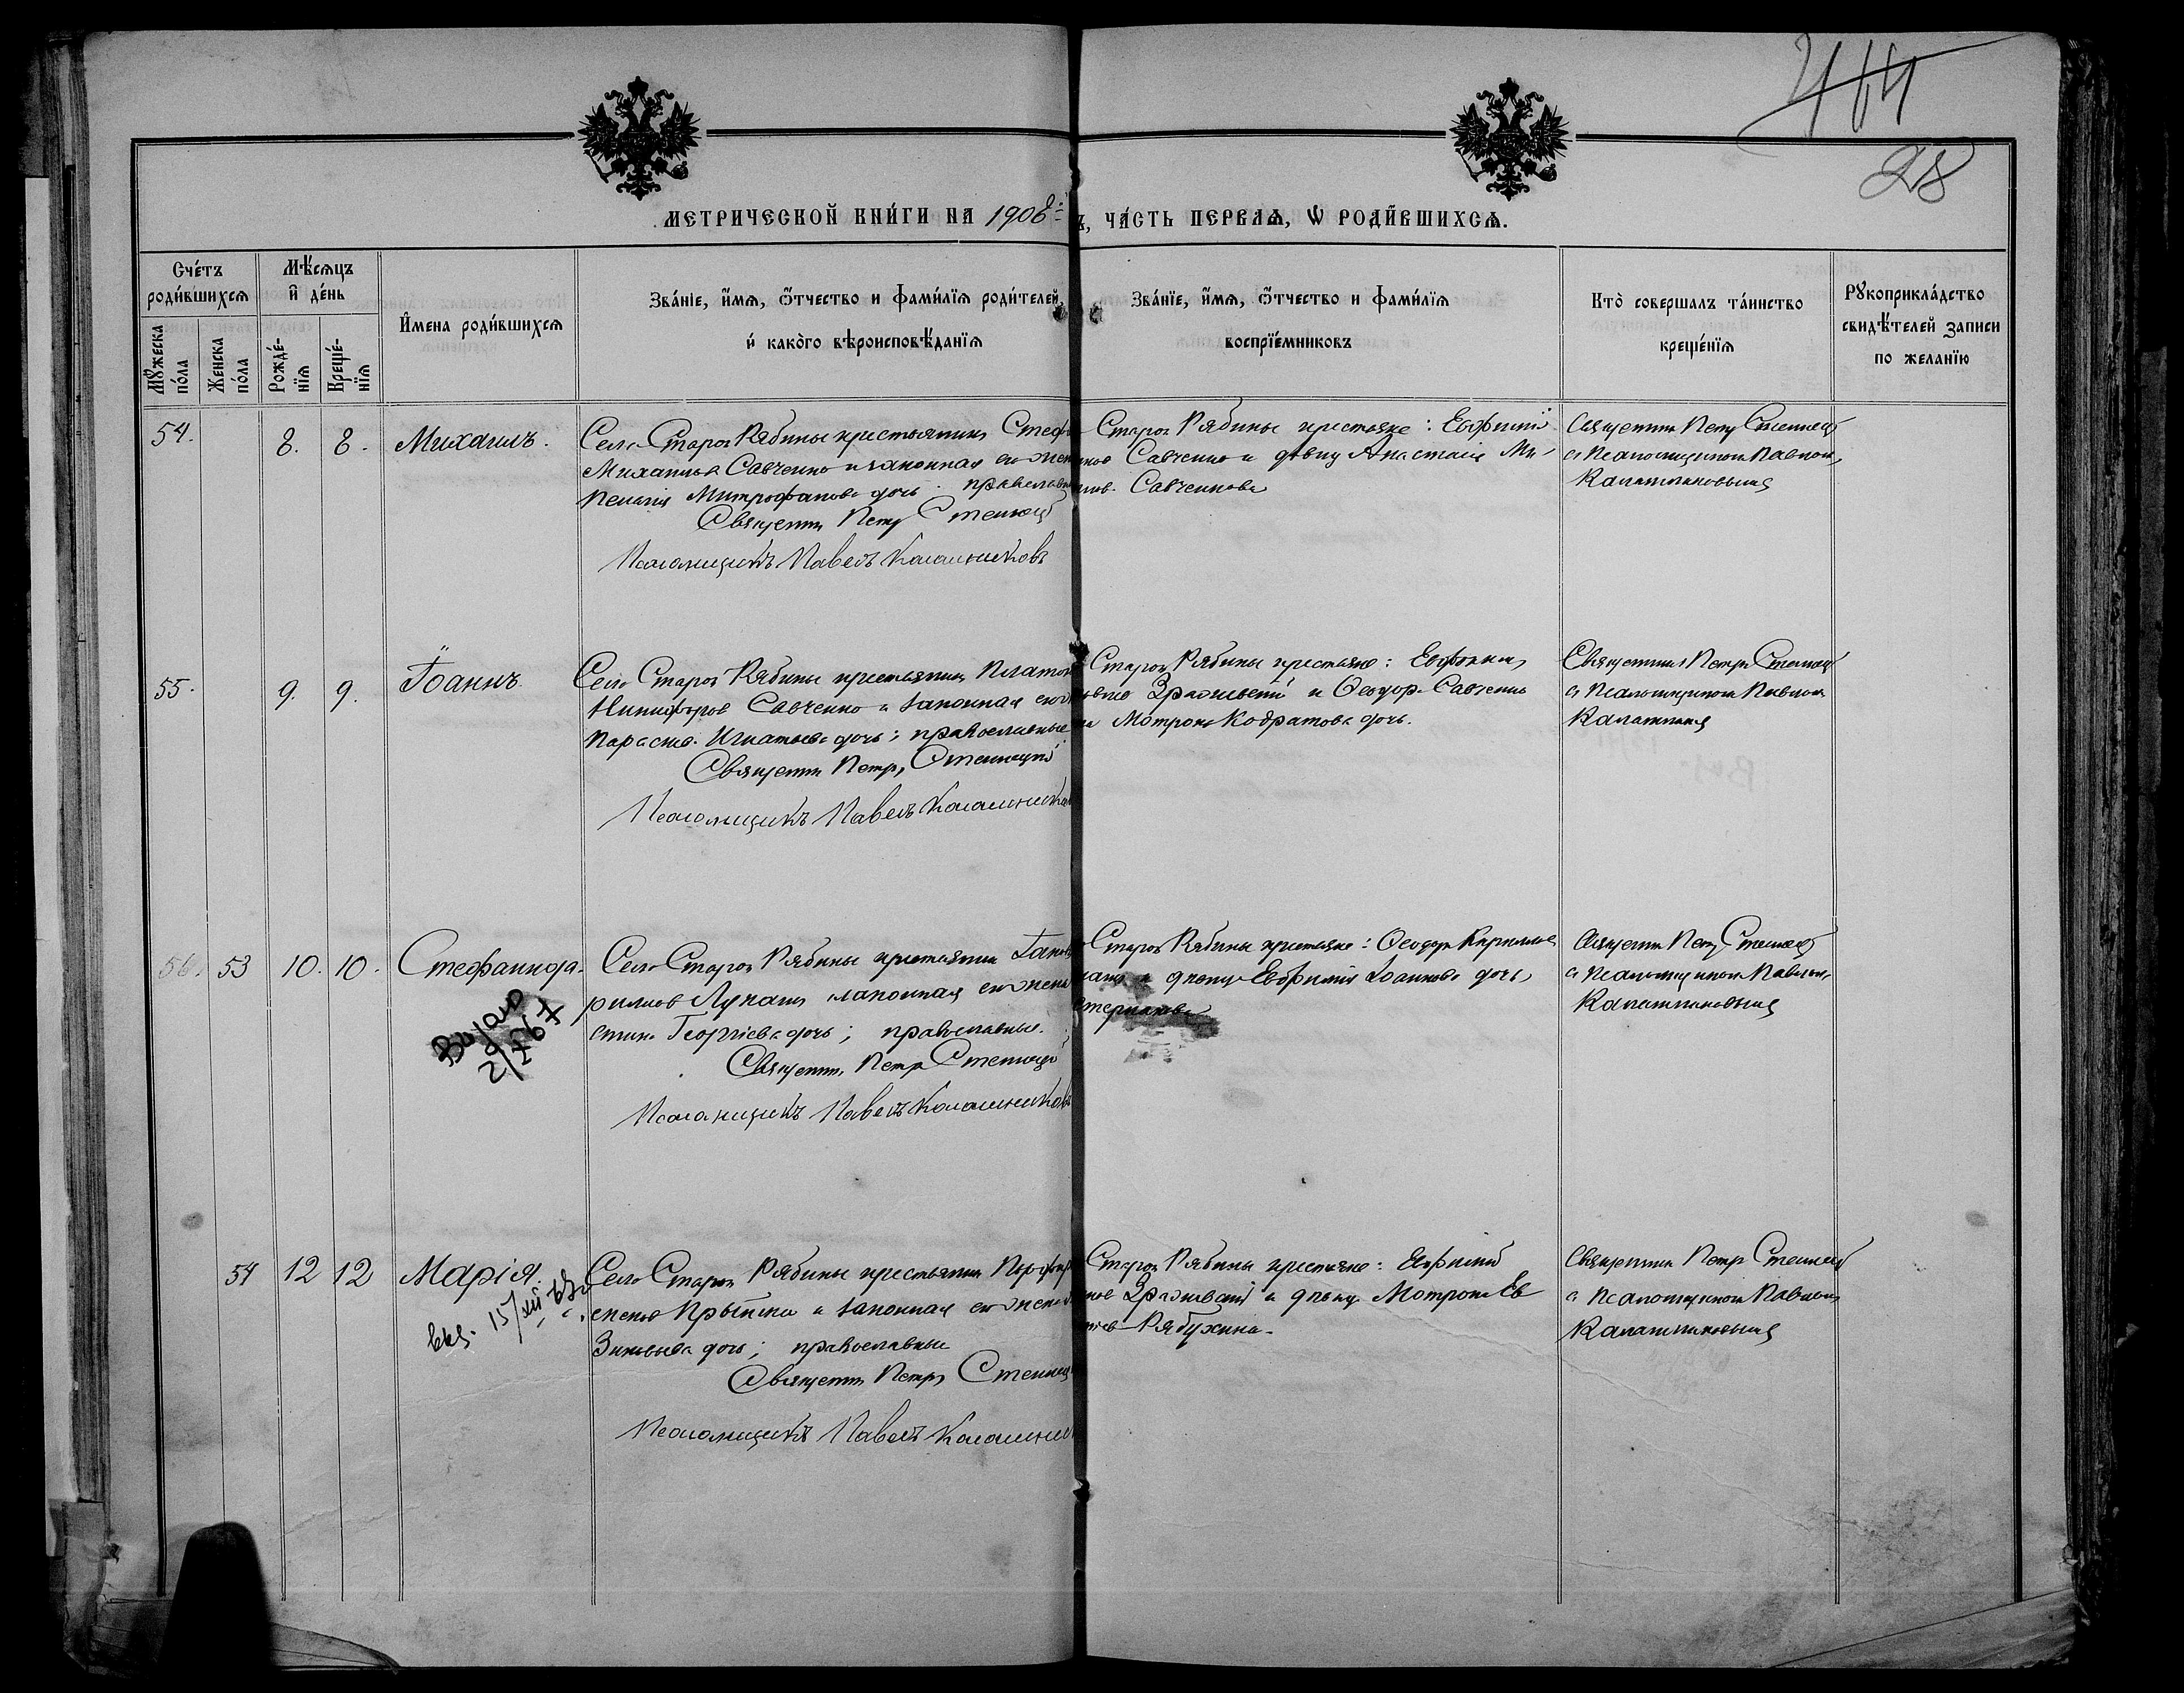 464
28
МЕТРИЧЕСКОЙ КНИ́ГИ НА 1908 ЧА́СТЬ ПЕРВАѦ, Ѡ РОДИ́ВШИХСѦ.
Сче́тъ роди́вшихсѧ
Мꙋ́жеска по́ла
Же́нска по́ла
Мѣ́сѧцъ и҆ де́нь
Рожде́нїѧ
Креще́нїѧ
И҆́мена роди́вшихсѧ
Зва́нїе, и҆́мѧ, ѻ҆́тчество и фами́лїѧ роди́телей, и҆ како́гѡ вѣроисповѣ́данїѧ
Зва́нїе, и҆́мѧ, ѻ҆́тчество и фами́лїѧ воспрїе́мниковъ
Кто̀ совершалъ та́инство креще́нїѧ
Рꙋкоприкла́дство свидѣ́телей записи по желанїю
54. 8. 8. Михаилъ.
Села Старой Рябины крестьянинъ Стеф
Михаиловъ Савченко и законная его жена
Пелагія Митрофанова дочь. православн
Священникъ Петръ Стеллецкій
Псаломщикъ Павелъ Калашниковъ
Старой Рябины крестьяне: Евфимій
Савченко и дѣвица Анастасія Ми
Савченкова
Священникъ Петръ Стеллецкій
съ Псаломщикомъ Павломъ
Калашниковымъ
55. 9. 9. Іоаннъ.
Села Старой Рябины крестьянинъ Платонъ
Никифоровъ Савченко и законная его
Параскева Игнатьева дочь; православные
Священникъ Петръ Стеллецкій
Псаломщикъ Павелъ Калашников
Старой Рябины крестьяне:
и Ѳеодор Савченко
Мотрона Кодратова дочь.
Священникъ Петръ Стеллецкій
съ Псаломщикомъ Павломъ
56. 53 10. 10. Стефанида.
Видано
2/ 67
Села Старой Рябины крестьянинъ
риловъ Лукашъ законная его жена
стина Георгіева дочь; православные.
Священникъ Петръ Стеллецкій
Псаломщикъ Павелъ Калашников
Старой Рябины крестьяне: Ѳеодоръ Кириловъ
и дѣвица Евфимія Іоаннова дочь
Священникъ Петръ Стеллецкій
съ Псаломщикомъ Павломъ
Калашниковымъ
54 12 12 Марія.
15/XII
Села Старой Рябины крестьянинъ Порфир
и законная его жена
Зиновьева дочь; православные
Священникъ Петръ Стеллец
Псаломщикъ Павелъ Калашник
Старой Рябины крестьяне: Евфимій
и дѣвица Мотрона Ев
Рябухина.
Священникъ Петръ Стеллецкій
съ Псаломщикомъ Павломъ
Калашниковымъ